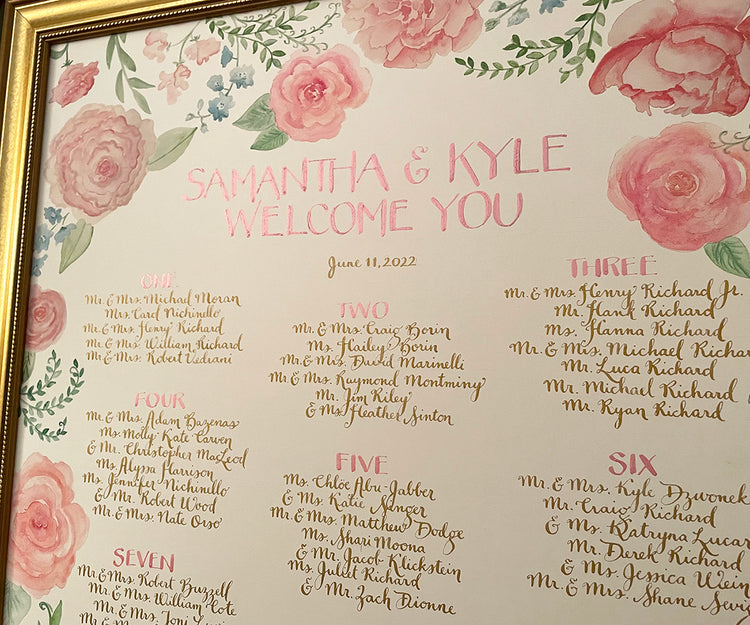 SAMANTHA & KYLE
WELCOME YOU
June 11, 2022
ONE
Mr. & Mrs. Michael Moran
Mrs. Carol Nichinello
Mr. & Mrs. Henry Richard
Mr. & Mrs. William Richard
Mr. & Mrs. Robert Vedrani
TWO
Mr. & Mrs. Craig Borin
Ms. Hailey Borin
Mr. & Mrs. David Marinelli
Mr. & Mrs. Raymond Montminy
Mr. Jim Riley
& Ms. Heather Sinton
THREE
Mr. & Mrs. Henry Richard Jr.
Mr. Hank Richard
Ms. Hanna Richard
Mr. & Mrs. Michael Richar
Mr. Luca Richard
Mr. Michael Richard
Mr. Ryan Richard
FOUR
Mr. & Mrs. Adam Bazenas
Ms. Molly Kate Carven
& Mr. Christopher MacLeod
Ms. Alyssa Harrison
Ms. Jennifer Nichinello
& Mr. Robert Wood
Mr. & Mrs. Nate Orso
FIVE
Ms. Chloe Abu-Jabber
& Ms. Katie Nenger
Mr. & Mrs. Matthew Dodge
Ms. Shari Moona
& Mr. Jacob Klickstein
Ms. Juliet Richard
& Mr. Zach Dionne
SIX
Mr. & Mrs. Kyle Dzwonek
Mr. Craig Richard
& Ms. Katryna Lucar
Mr. Derek Richard
& Ms. Jessica Wein
Mr. & Mrs. Shane
SEVEN
Mr. & Mrs. Robert Buzzell
Mr. & Mrs. William Cote
Mr. & Mrs.